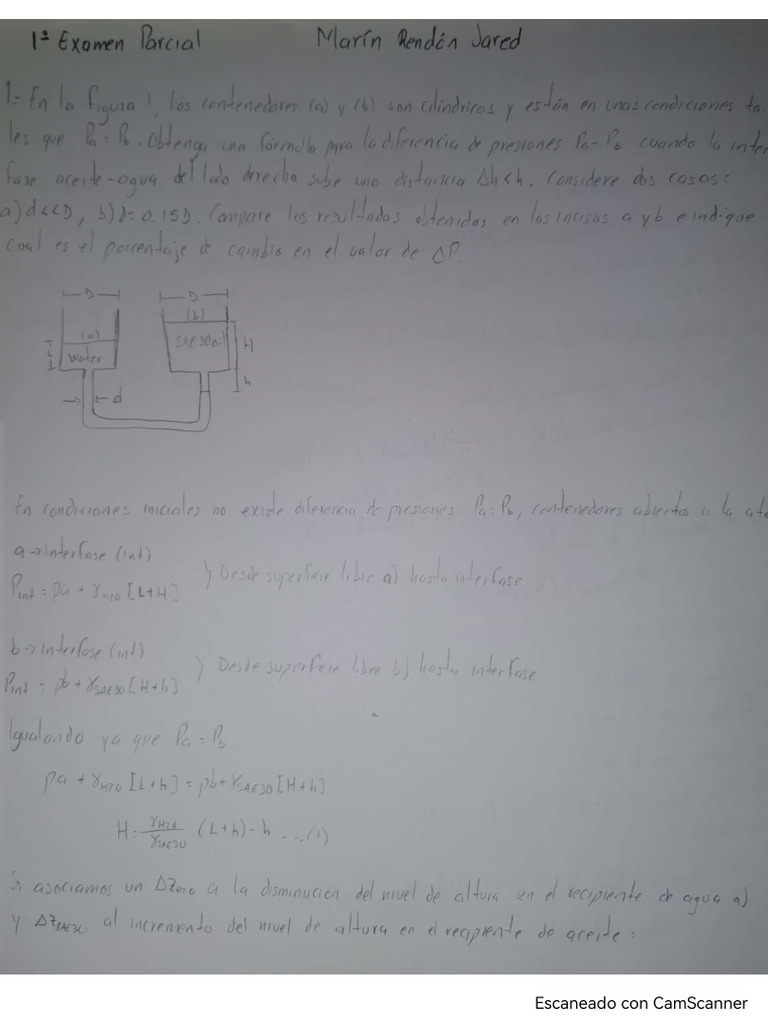 1ª Examen Parcial Marín Rendón Jared
1.- En la figura 1, los contenedores (a) y (b) son cilíndricos y están en unas condiciones ta-
les que Pa = Pb. Obtenga una fórmula para la diferencia de presiones Pa-Pb cuando la inter
fase aceite-agua del lado derecho sube una distancia Δh<h. Considere dos casos:
a) d<<D, b) d=0.15D. Compare los resultados obtenidos en los incisos a y b e indique
cuál es el porcentaje de cambio en el valor de ΔP.
D D
(a) (b)
Water SAE 30 oil H
L h
d
En condiciones iniciales no existe diferencia de presiones Pa=Pb, contenedores abiertos a la at
a→interfase (int)
Pint = pa + γH2O [L+H] } Desde superficie libre a) hasta interfase
b→interfase (int)
Pint = pb + γSAE30 [H+h] } Desde superficie libre b) hasta interfase
Igualando ya que Pa = Pb
pa + γH2O [L+h] = pb + γSAE30 [H+h]
H = γH2O/γSAE30 (L+h) - h ....(1)
Si asociamos un ΔzH2O a la disminución del nivel de altura en el recipiente de agua a)
y ΔzSAE30 al incremento del nivel de altura en el recipiente de aceite:
Escaneado con CamScanner